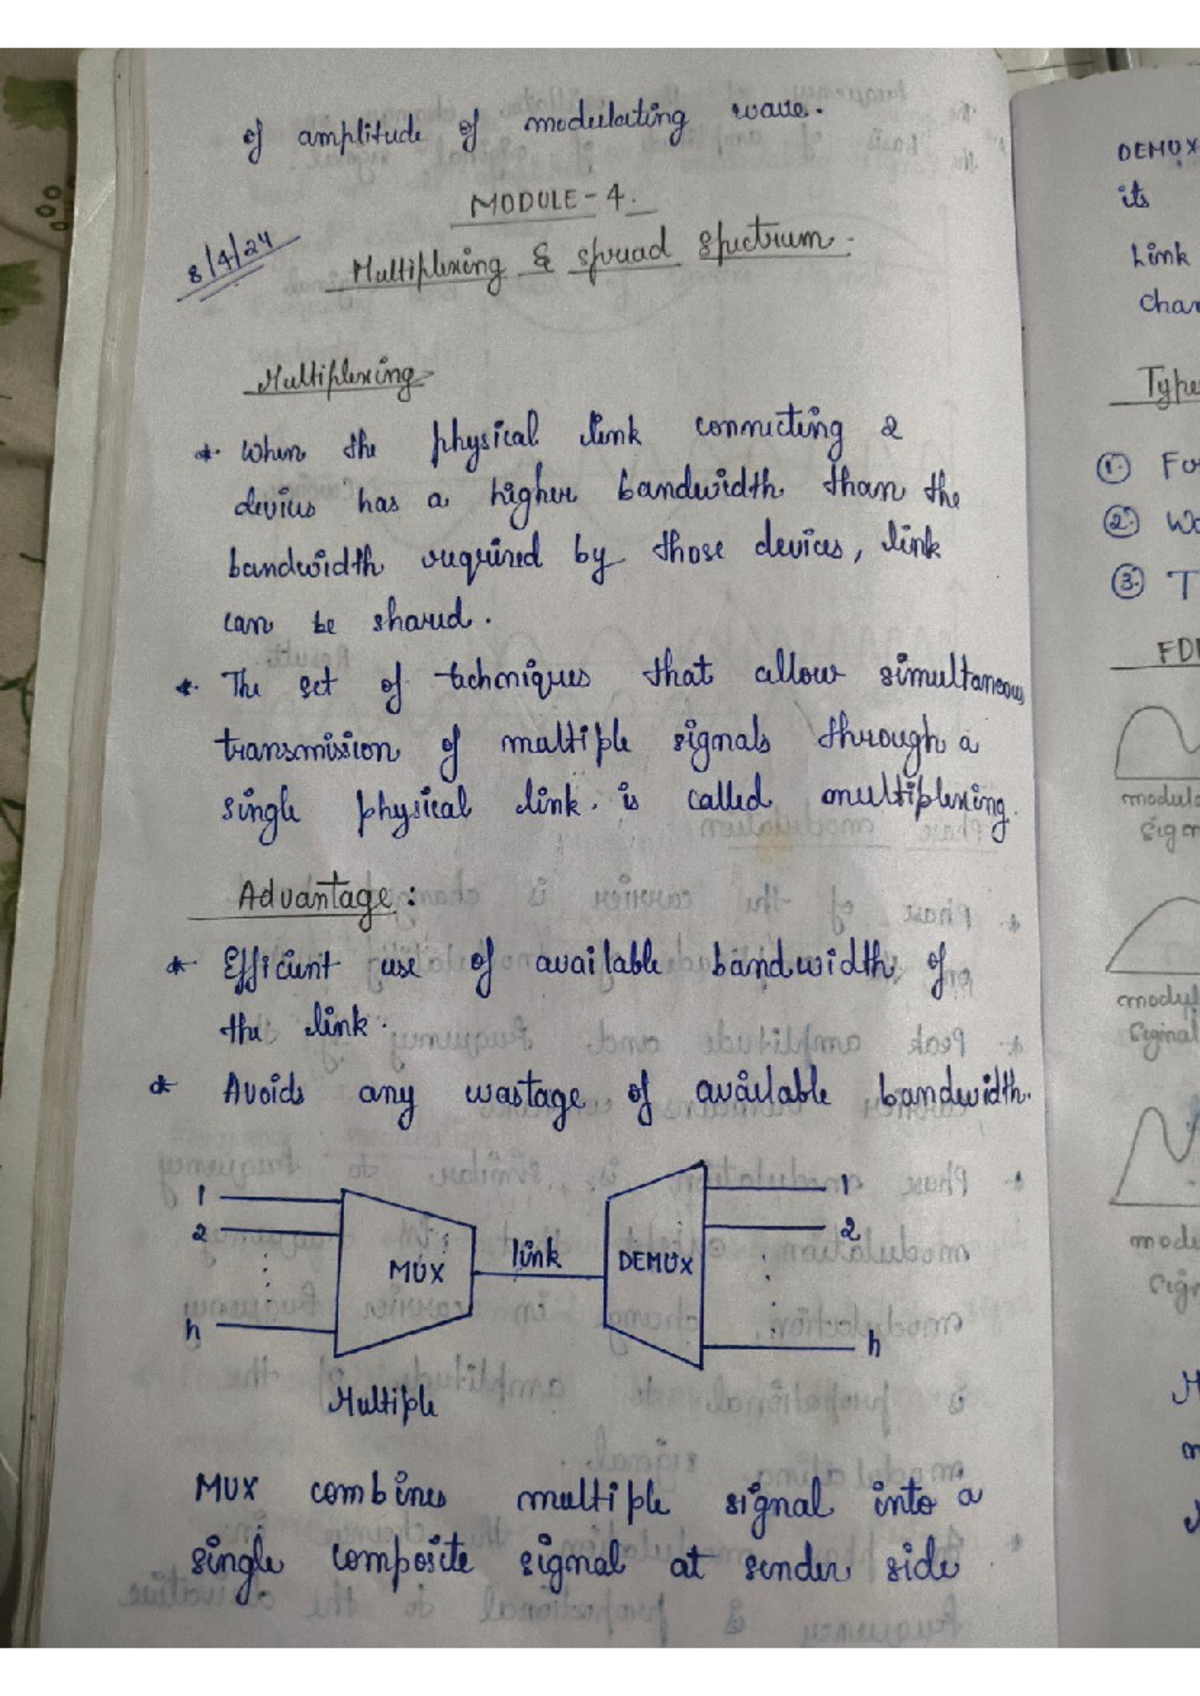 of amplitude of modulating wave.
MODULE-4.
8/4/24
Multiplexing & spread spectrum.
Multiplexing
* When the physical link connecting 2
devices has a higher bandwidth than the
bandwidth required by those devices, link
can be shared.
* The set of techniques that allow simultaneous
transmission of multiple signals through a
single physical link is called multiplexing.
Advantage:
* Efficient use of available bandwidth of
the link.
* Avoids any wastage of available bandwidth.
1
2
n
MUX
link
DEMUX
1
2
n
Multiple
MUX combines multiple signal into a
single composite signal at sender side
DEMUX
its
Link
①
②
③ T